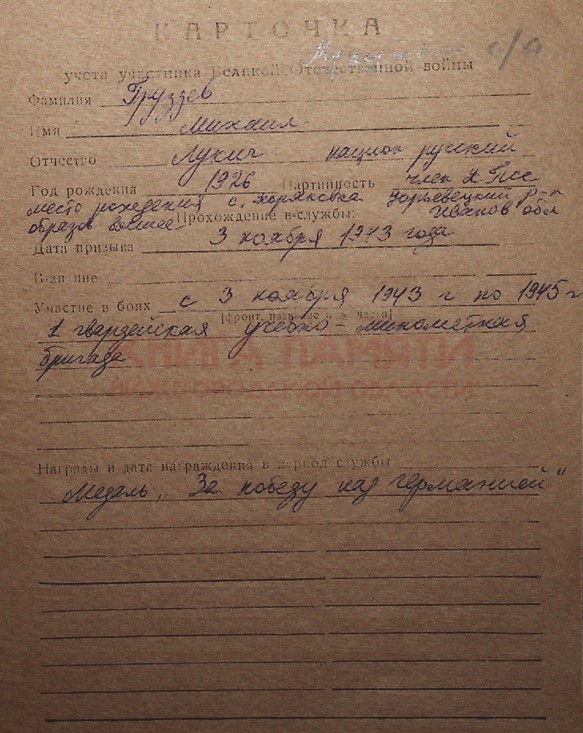 КАРТОЧКА
с/а
учета участника Великой Отечественной войны
Фамилия Груздев
Имя Михаил
Отчество Лукич национ русский
Год рождения 1926 Партийность член КПСС
место рождения с. Юрьевецкий р-н
образов высшее Прохождение в службы: Иванов обл
Дата призыва 3 ноября 1943 года
Звание
Участие в боях с 3 ноября 1943 г по 1945 г
[фронт, название в. части]
1 гвардейская учебно-минометная
бригада
КНИГА ПАМЯТИ
НИЖЕГОРОДСКОЙ ОБЛАСТИ
Награды и дата награждения в период службы
Медаль „За победу над германией"